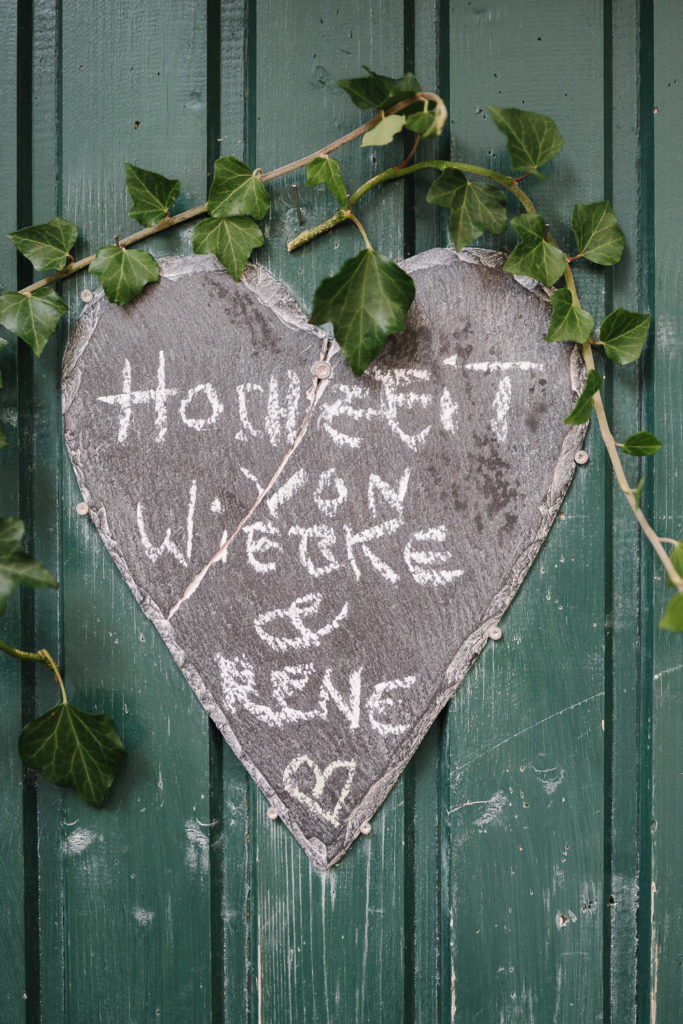 HOCHZEiT
VON
WiEBKE
&
RENE